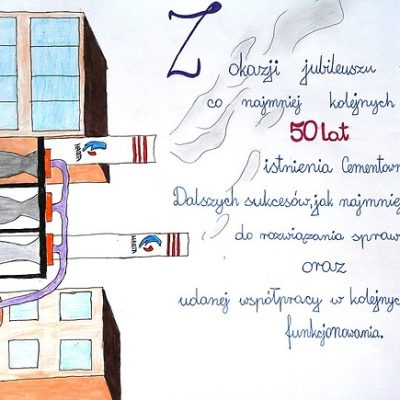 Z okazji jubileuszu
co najmniej kolejnych
50 lat
istnienia
Dalszych sukcesów, jak
do rozwiązania
oraz
udanej współpracy w
funkcjonowania.
WARTA
WARTA